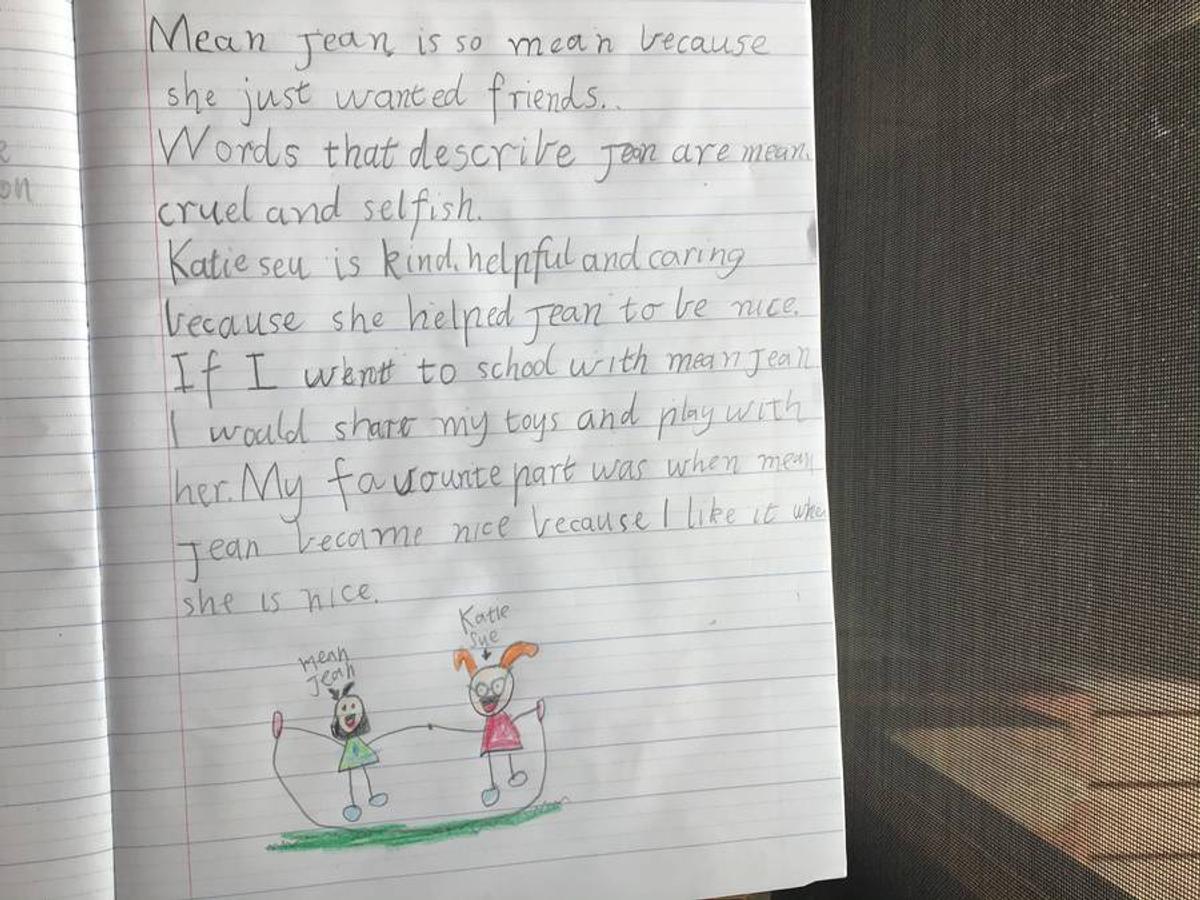 Mean Jean is so mean because
she just wanted friends..
Words that describe Jean are mean,
cruel and selfish.
Katie seu is kind, helpful and caring
because she helped Jean to be nice.
If I went to school with mean Jean
I would share my toys and play with
her. My favourite part was when mean
Jean became nice because I like it
she is nice.
Katie
Sue
mean
Jean
on